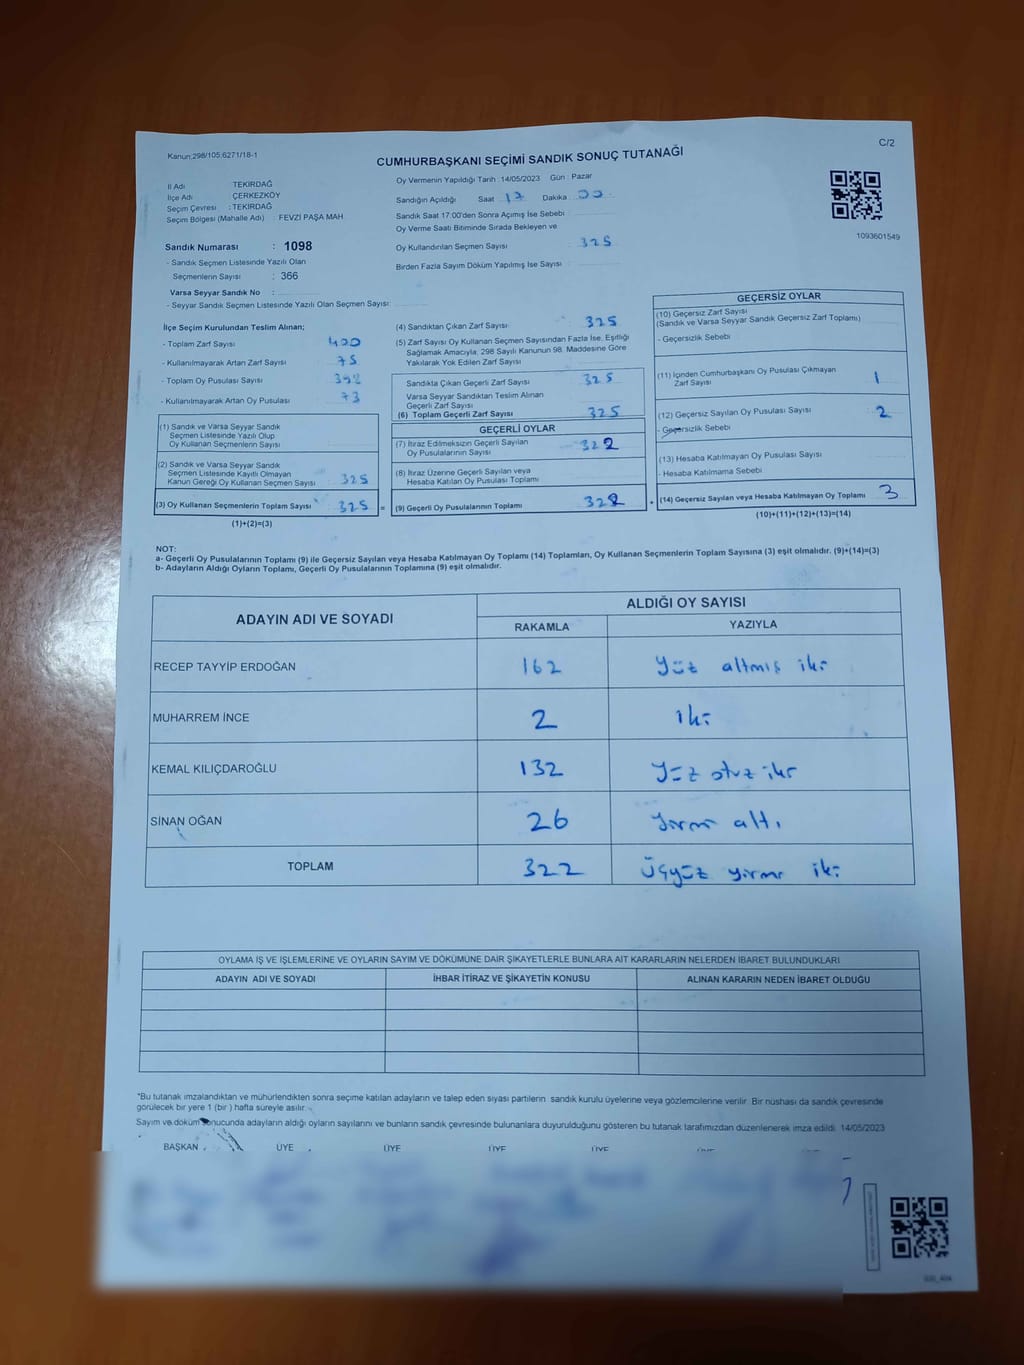 Kanun:298/105:6271/18-1
C/2
CUMHURBAŞKANI SEÇİMİ SANDIK SONUÇ TUTANAĞI
İl Adı TEKİRDAĞ
İlçe Adı : ÇERKEZKÖY
Seçim Çevresi : TEKİRDAĞ
Seçim Bölgesi (Mahalle Adı) : FEVZİ PAŞA MAH.
Oy Vermenin Yapıldığı Tarih : 14/05/2023 Gün : Pazar
Sandığın Açıldığı Saat 17 Dakika 00
Sandık Saat 17:00'den Sonra Açımış İse Sebebi
Oy Verme Saati Bitiminde Sırada Bekleyen ve
Oy Kullandırılan Seçmen Sayısı : 325
Birden Fazla Sayım Döküm Yapılmış İse Sayısı
1093601549
Sandık Numarası : 1098
- Sandık Seçmen Listesinde Yazılı Olan
Seçmenlerin Sayısı : 366
Varsa Seyyar Sandık No :
- Seyyar Sandık Seçmen Listesinde Yazılı Olan Seçmen Sayısı:
İlçe Seçim Kurulundan Teslim Alınan;
- Toplam Zarf Sayısı 400
- Kullanılmayarak Artan Zarf Sayısı 75
- Toplam Oy Pusulası Sayısı
- Kullanılmayarak Artan Oy Pusulası 73
(1) Sandık ve Varsa Seyyar Sandık
Seçmen Listesinde Yazılı Olup
Oy Kullanan Seçmenlerin Sayısı
(2) Sandık ve Varsa Seyyar Sandık
Seçmen Listesinde Kayıtlı Olmayan
Kanun Gereği Oy Kullanan Seçmen Sayısı 325
(3) Oy Kullanan Seçmenlerin Toplam Sayısı 325 =
(1)+(2)=(3)
(4) Sandıktan Çıkan Zarf Sayısı 325
(5) Zarf Sayısı Oy Kullanan Seçmen Sayısından Fazla İse, Eşitliği
Sağlamak Amacıyla, 298 Sayılı Kanunun 98. Maddesine Göre
Yakılarak Yok Edilen Zarf Sayısı
Sandıkta Çıkan Geçerli Zarf Sayısı 325
Varsa Seyyar Sandıktan Teslim Alınan
Geçerli Zarf Sayısı
(6) Toplam Geçerli Zarf Sayısı 325
GEÇERLİ OYLAR
(7) İtiraz Edilmeksizin Geçerli Sayılan
Oy Pusulalarının Sayısı 322
(8) İtiraz Üzerine Geçerli Sayılan veya
Hesaba Katılan Oy Pusulası Toplamı
(9) Geçerli Oy Pusulalarının Toplamı 322 +
GEÇERSİZ OYLAR
(10) Geçersiz Zarf Sayısı
(Sandık ve Varsa Seyyar Sandık Geçersiz Zarf Toplamı)
- Geçersizlik Sebebi
(11) İçinden Cumhurbaşkanı Oy Pusulası Çıkmayan
Zarf Sayısı 1
(12) Geçersiz Sayılan Oy Pusulası Sayısı 2
- Geçersizlik Sebebi
(13) Hesaba Katılmayan Oy Pusulası Sayısı
- Hesaba Katılmama Sebebi
(14) Geçersiz Sayılan veya Hesaba Katılmayan Oy Toplamı 3
(10)+(11)+(12)+(13)=(14)
NOT:
a- Geçerli Oy Pusulalarının Toplamı (9) ile Geçersiz Sayılan veya Hesaba Katılmayan Oy Toplamı (14) Toplamları, Oy Kullanan Seçmenlerin Toplam Sayısına (3) eşit olmalıdır. (9)+(14)=(3)
b- Adayların Aldığı Oyların Toplamı, Geçerli Oy Pusulalarının Toplamına (9) eşit olmalıdır.
ADAYIN ADI VE SOYADI ALDIĞI OY SAYISI
RAKAMLA YAZIYLA
RECEP TAYYİP ERDOĞAN 162 Yüz altmış iki
MUHARREM İNCE 2 iki
KEMAL KILIÇDAROĞLU 132 Yüz otuz iki
SİNAN OĞAN 26 Yirmi altı
TOPLAM 322 Üçyüz yirmi iki
OYLAMA İŞ VE İŞLEMLERİNE VE OYLARIN SAYIM VE DÖKÜMÜNE DAİR ŞİKAYETLERLE BUNLARA AİT KARARLARIN NELERDEN İBARET BULUNDUKLARI
ADAYIN ADI VE SOYADI İHBAR İTİRAZ VE ŞİKAYETİN KONUSU ALINAN KARARIN NEDEN İBARET OLDUĞU
*Bu tutanak imzalandıktan ve mühürlendikten sonra seçime katılan adayların ve talep eden siyasi partilerin sandık kurulu üyelerine veya gözlemcilerine verilir. Bir nüshası da sandık çevresinde
görülecek bir yere 1 (bir ) hafta süreyle asılır.
Sayım ve döküm sonucunda adayların aldığı oyların sayılarını ve bunların sandık çevresinde bulunanlara duyurulduğunu gösteren bu tutanak tarafımızdan düzenlenerek imza edildi. 14/05/2023
BAŞKAN ÜYE ÜYE ÜYE ÜYE ÜYE